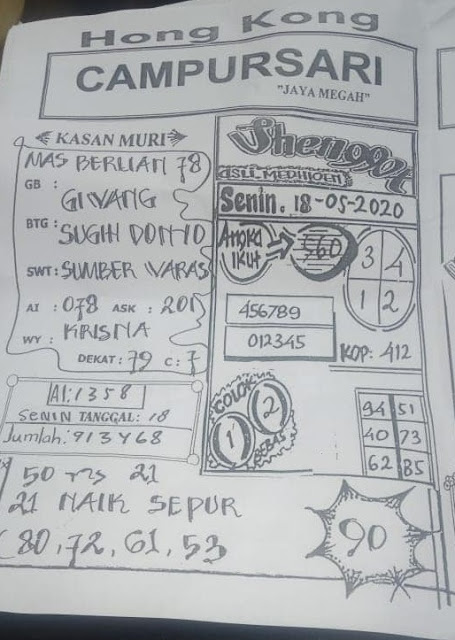 Hong Kong
CAMPURSARI
"JAYA MEGAH"
KASAN MURI
MAS BERLIAN 78
GB :
GIWANG
BTG : SUGIH DONYO
SWT : SUMBER WARAS
AI : 078 ASK : 201
WY : KRISNA
DEKAT : 79 C : 7
AI : 1358
SENIN TANGGAL : 18
Jumlah : 913468
Shenggot
ASLI MEDHIOEN
Senin. 18-05-2020
Angka
IKUT
760
3 4
1 2
456789
012345
KOP: 412
COLOK
1 2
BEBAS
94 51
40 73
62 85
50 ms 21
21 NAIK SEPUR
(80, 72, 61, 53
90